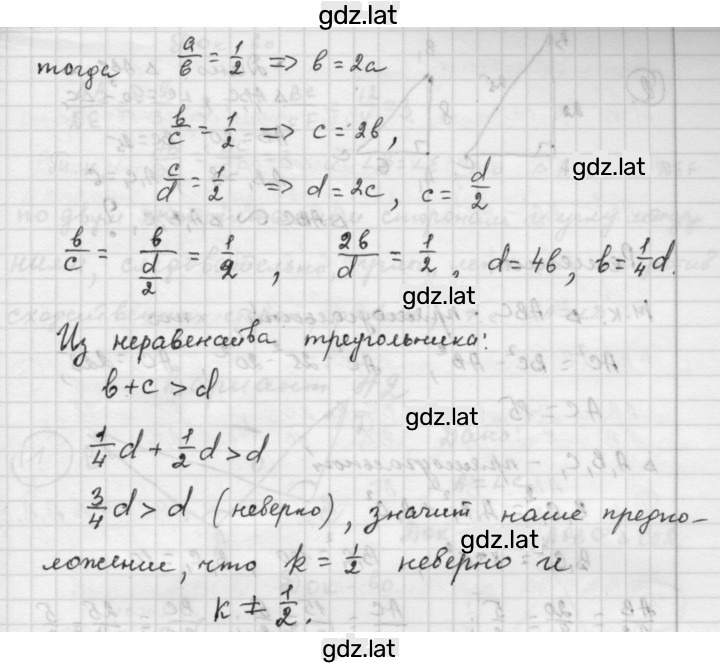 gdz.lat
тогда a/b = 1/2 => b = 2a
b/c = 1/2 => c = 2b,
gdz.lat
c/d = 1/2 => d = 2c, c = d/2
b/c = b/(d/2) = 1/2, 2b/d = 1/2, d = 4b, b = 1/4 d.
gdz.lat
Из неравенства треугольника:
b + c > d
gdz.lat
1/4 d + 1/2 d > d
3/4 d > d (неверно), значит наше предпо-
gdz.lat
ложение, что k = 1/2 неверно и
k ≠ 1/2.
gdz.lat